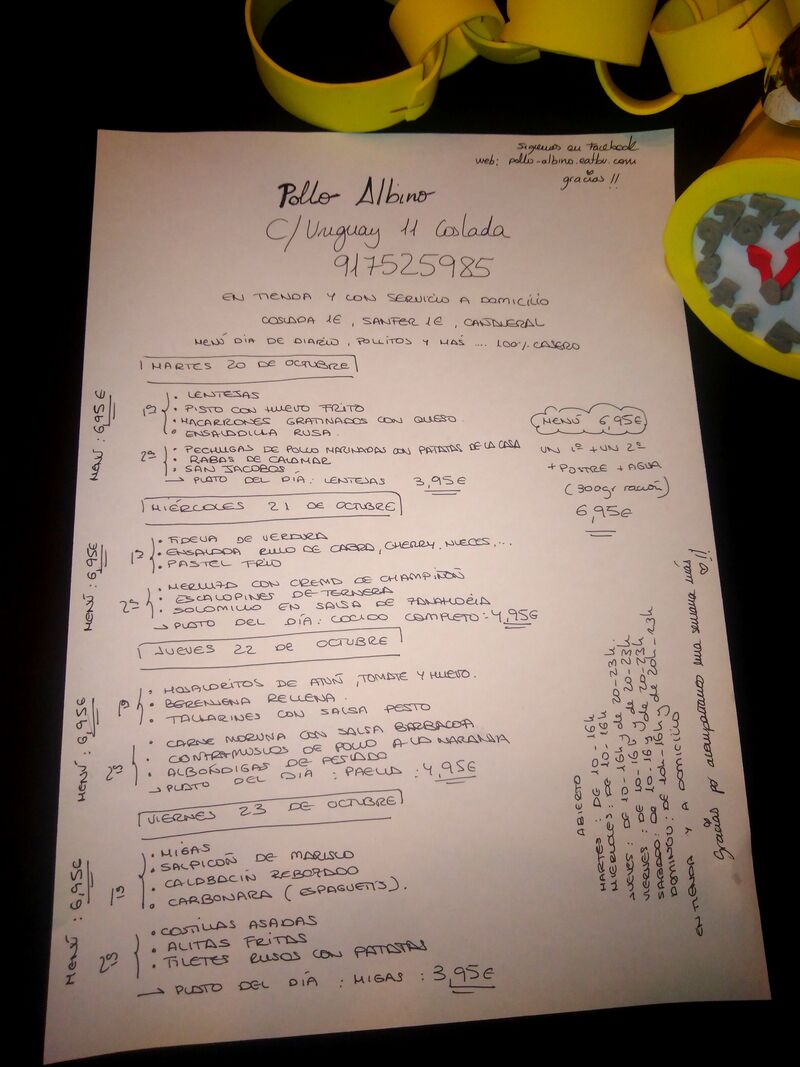 Siguenos en Facebook
web: pollo-albino.eatbu.com
gracias!!
Pollo Albino
C/Uruguay 11 Coslada
917525985
EN TIENDA Y CON SERVICIO A DOMICILIO
COSLADA 1E, SANFER 1E, CAÑAVERAL
MENÚ DIA DE DIARIO, POLLITOS Y MAS .... 100% CASERO
MARTES 20 DE OCTUBRE
MENÚ: 6,95€
1º
• LENTEJAS
• PISTO CON HUEVO FRITO
• MACARRONES GRATINADOS CON QUESO.
• ENSALADILLA RUSA.
2º
• PECHUGAS DE POLLO MARINADAS CON PATATAS DE LA CASA
• RABAS DE CALAMAR
• SAN JACOBOS
→ PLATO DEL DÍA: LENTEJAS 3,95€
MENÚ 6,95€
UN 1º + UN 2º
+ POSTRE + AGUA
(300gr ración)
6,95€
MIÉRCOLES 21 DE OCTUBRE
MENÚ: 6,95€
1º
• FIDEUA DE VERDURA
• ENSALADA RULO DE CABRA, CHERRY, NUECES,...
• PASTEL FRIO
2º
• MERLUZA CON CREMA DE CHAMPIÑÓN
• ESCALOPINES DE TERNERA
• SOLOMILLO EN SALSA DE ZANAHORIA
→ PLATO DEL DÍA: COCIDO COMPLETO: 4,95€
JUEVES 22 DE OCTUBRE
MENÚ: 6,95€
1º
• HOJALDRITOS DE ATÚN, TOMATE Y HUEVO.
• BERENJENA RELLENA.
• TALLARINES CON SALSA PESTO
2º
• CARNE MORUNA CON SALSA BARBACOA
• CONTRAMUSLOS DE POLLO A LA NARANJA
• ALBONDIGAS DE PESCADO
→ PLATO DEL DÍA: PAELLA: 4,95€
VIERNES 23 DE OCTUBRE
MENÚ: 6,95€
1º
• MIGAS
• SALPICÓN DE MARISCO
• CALABACIN REBOZADO
• CARBONARA (ESPAGUETIS).
2º
• COSTILLAS ASADAS
• ALITAS FRITAS
• FILETES RUSOS CON PATATAS
→ PLATO DEL DÍA: MIGAS: 3,95€
ABIERTO
MARTES: DE 10-16h
MIERCOLES: DE 10-16h
JUEVES: DE 10-16h y de 20-23h.
VIERNES: DE 10-16h y de 20-23h
SABADO: DE 10-16h y de 20-23h
DOMINGO: DE 10h-16h y de 20h-23h
EN TIENDA Y A DOMICILIO
Gracias por acompañarnos una semana más!!